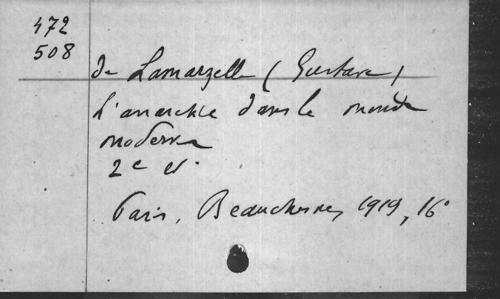 472
508
de Lamarzelle (Gustave)
L'anarchie dans le monde
moderne
2e éd.
Paris, Beauchesne, 1919, 16°